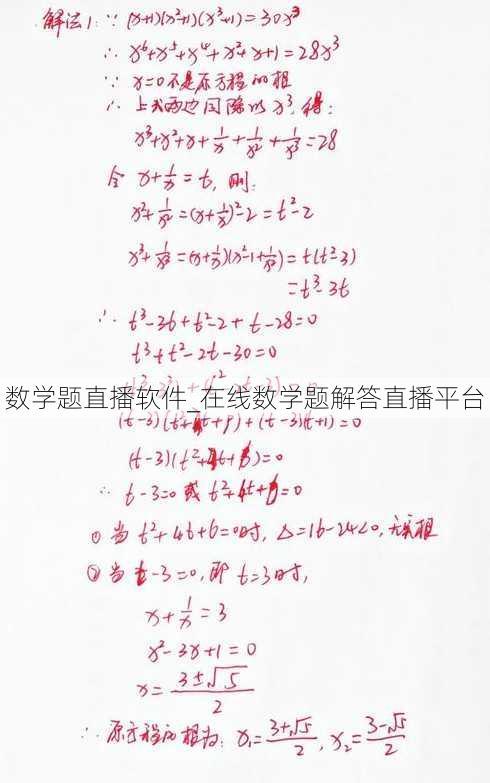 解法1: ∵ (x+1)(x²+1)(x³+1)=30x³
∴ x⁶+x⁵+x⁴+x²+x+1=28x³
∵ x=0不是原方程的根
∴ 上式两边同除以x³,得:
x³+x²+x+1/x+1/x²+1/x³=28
令 x+1/x=t, 则:
x²+1/x²=(x+1/x)²-2=t²-2
x³+1/x³=(x+1/x)(x²-1+1/x²)=t(t²-3)
=t³-3t
∴ t³-3t+t²-2+t-28=0
t³+t²-2t-30=0
数学题直播软件_在线数学题解答直播平台
(t-3)(t²+ t+9)+(t-3)(t+1)=0
(t-3)(t²+4t+6)=0
∴ t-3=0 或 t²+4t+6=0
① 当 t²+4t+6=0时, Δ=16-24<0, 无实根
② 当 t-3=0, 即 t=3时,
x+1/x=3
x²-3x+1=0
x=(3±√5)/2
∴ 原方程的根为: x₁=(3+√5)/2, x₂=(3-√5)/2